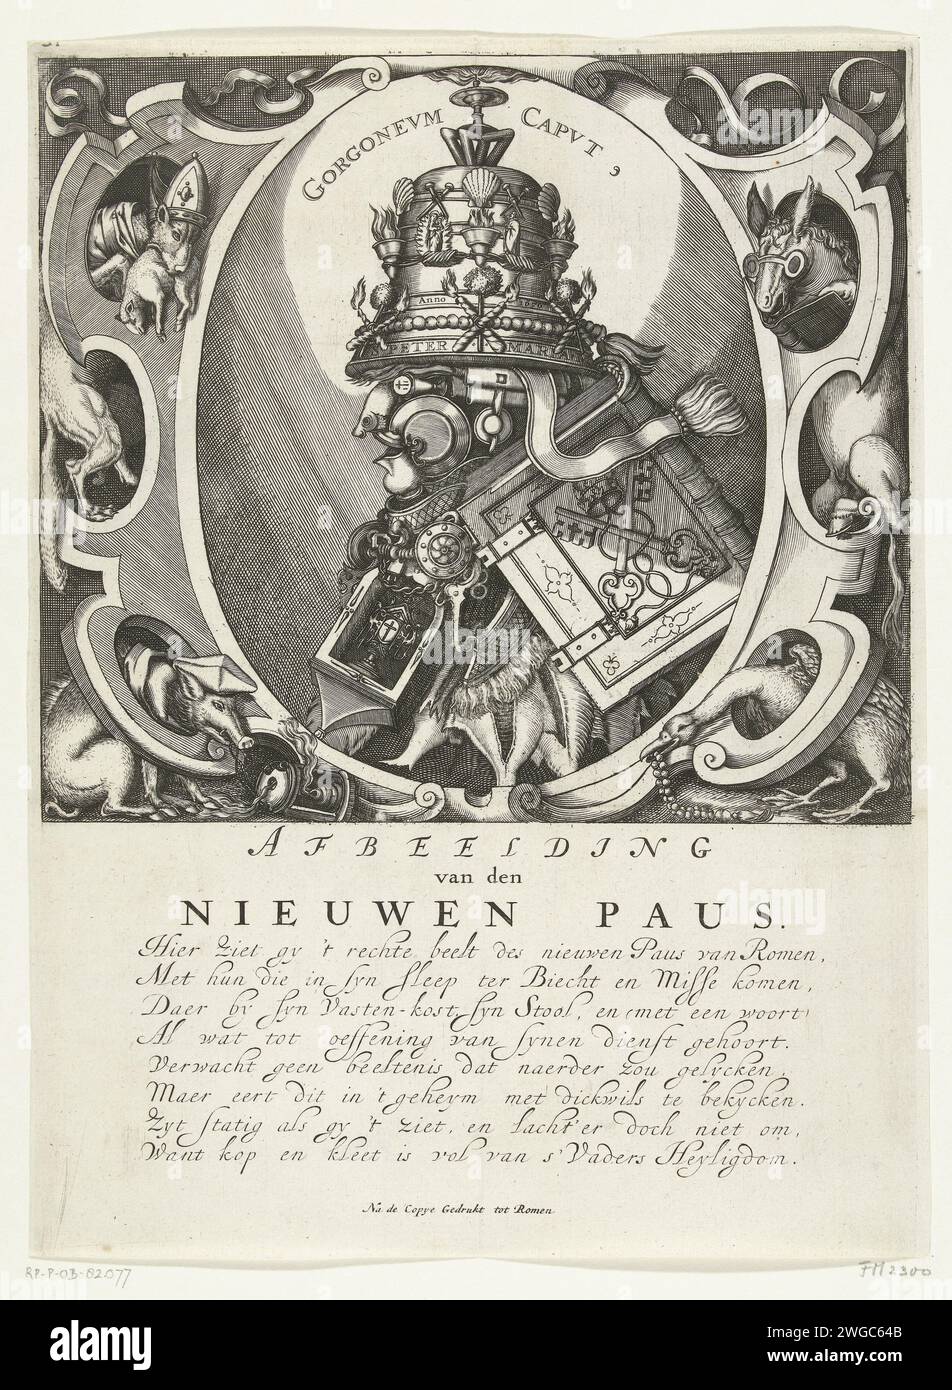 GORGONEVM CAPVT
Anno
PETER MARIA
AFBEELDING
van den
NIEUWEN PAUS.
Hier ziet gy 't rechte beelt des nieuwen Paus van Romen,
Met hun die in syn sleep ter Biecht en Misse komen,
Daer by syn Vasten-kost, syn Stool, en (met een woort)
Al wat tot oeffening van synen dienst gehoort.
Verwacht geen beeltenis dat naerder zou gelycken,
Maer eert dit in 't geheym met dickwils te bekycken.
Zyt statig als gy 't ziet, en lacht'er doch niet om,
Want kop en kleet is vol van s'Vaders Heyligdom.
Na de Copye Gedrukt tot Romen
RP-P-OB-82.077
FM 2300
alamy
Image ID: 2WGC64B
www.alamy.com